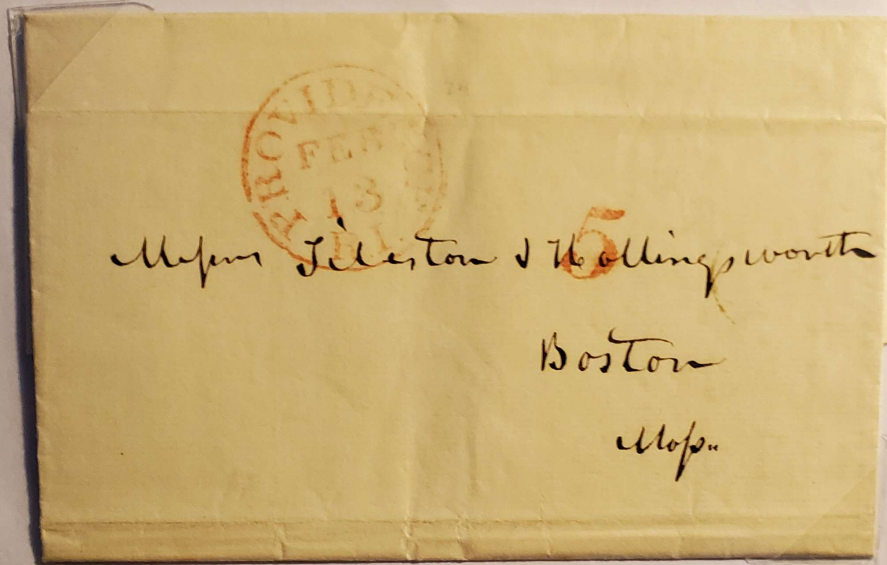 PROVIDENCE
FEB
13
R.I.
5
Messrs Tileston & Hollingsworth
Boston
Mass.